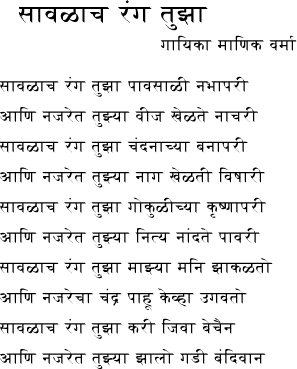 सावळाच रंग तुझा
गायिका माणिक वर्मा
सावळाच रंग तुझा पावसाळी नभापरी
आणि नजरेत तुझ्या वीज खेळते नाचरी
सावळाच रंग तुझा चंदनाच्या बनापरी
आणि नजरेत तुझ्या नाग खेळती विषारी
सावळाच रंग तुझा गोकुळीच्या कृष्णापरी
आणि नजरेत तुझ्या नित्य नांदते पावरी
सावळाच रंग तुझा माझ्या मनि झाकळतो
आणि नजरेचा चंद्र पाहू केव्हा उगवतो
सावळाच रंग तुझा करी जिवा बेचैन
आणि नजरेत तुझ्या झालो गडी बंदिवान